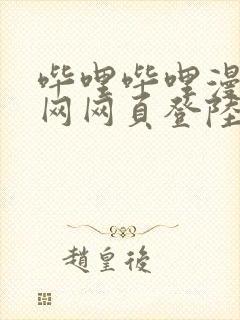 哔哩哔哩漫
网网页登陆
趙皇後